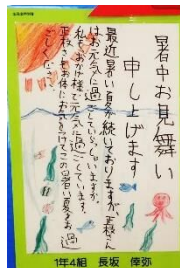 暑中お見舞い
申し上げます
最近暑い夏が続いておりますが、正枝さん
はお元気に過ごしていらっしゃいますか。
私もおかげ様で元気に過ごしています。
正枝さんもお体にお気をつけてこの暑い夏をお過
ごしください。
1年4組 長坂 倖弥